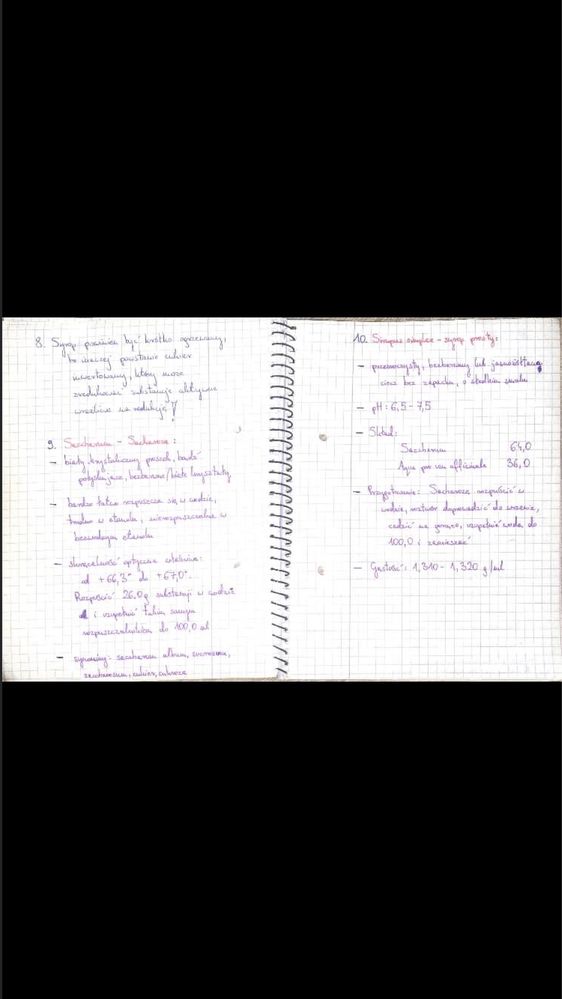 8. Syrop powinien być krótko ogrzewany,
bo inaczej powstanie cukier
inwertowany, który może
zredukować substancje aktywne
wrażliwe na redukcję!
9. Saccharum - Sacharoza:
- biały, krystaliczny proszek, bądź
połyskujące, bezbarwne/białe kryształy
- bardzo łatwo rozpuszcza się w wodzie,
trudno w etanolu, nierozpuszczalna w
bezwodnym etanolu
- skręcalność optyczna właściwa:
od +66,3° do +67,0°.
Rozpuścić 26,0g substancji w wodzie
i uzupełnić takim samym
rozpuszczalnikiem do 100,0 ml
- synonimy: saccharum album,
cukier
10. Sirupus simplex - syrop prosty:
- przezroczysty, bezbarwny lub jasnożółtawy
ciecz bez zapachu, o słodkim smaku
- pH: 6,5 - 7,5
- Skład:
Saccharum 64,0
Aqua 36,0
- Przygotowanie: Sacharozę rozpuścić w
wodzie, roztwór doprowadzić do wrzenia,
cedzić na gorąco, uzupełnić wodą do
100,0 i zamieszać
- Gęstość: 1,310 - 1,320 g/ml